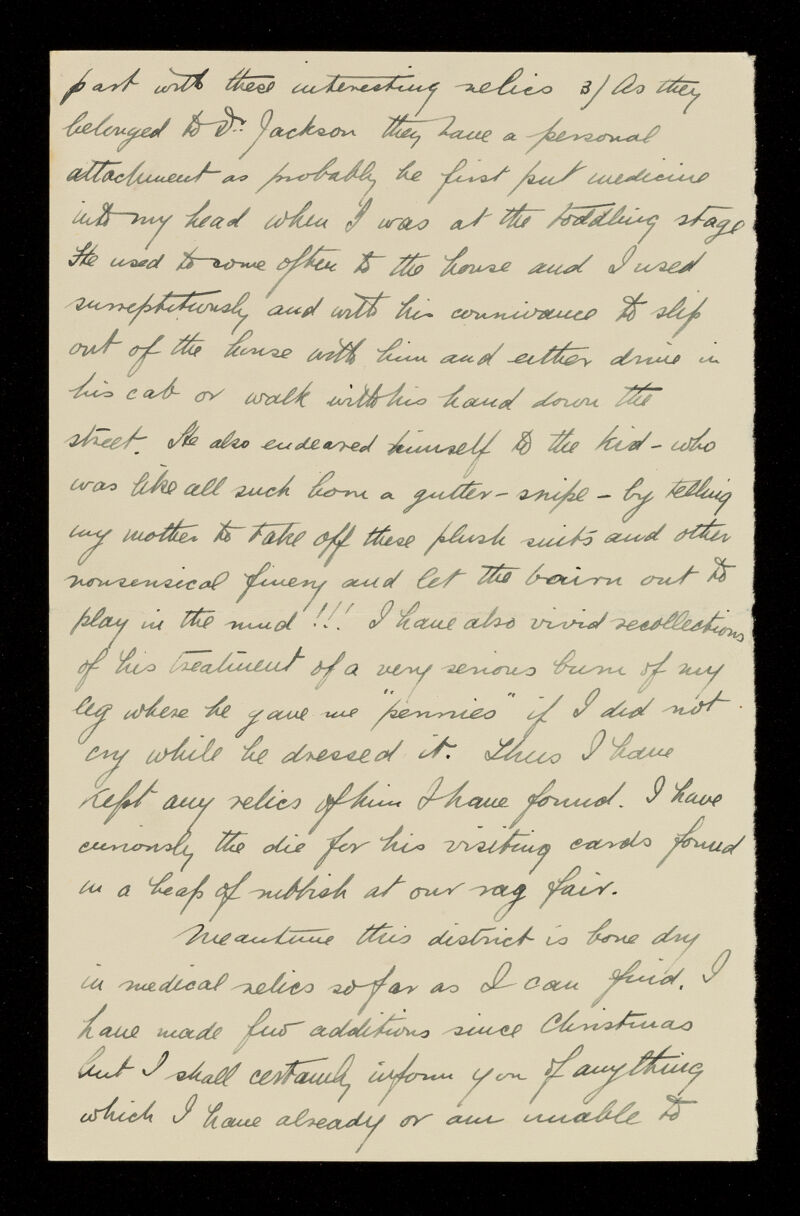 part with these interesting relics 3) As they
belonged to Dr. Jackson they have a personal
attachment as probably he first put medicine
into my head when I was at the toddling stage
He used to come often to the house and I used
surreptitiously and with his connivance to slip
out of the house with him and either drive in
his cab or walk with his hand down the
street. He also endeared himself to the kid - who
was like all such born a gutter-snipe - by telling
my mother to take off these plush suits and other
nonsensical finery and let the bairn out to
play in the mud!!! I have also vivid recollections
of his treatment of a very serious burn of my
leg where he gave me "pennies" if I did not
cry while he dressed it. Thus I have
kept any relics of him I have found. I have
curiously the die for his visiting cards found
in a heap of rubbish at our rag fair.
Meantime this district is bone dry
in medical relics so far as I can find. I
have made few additions since Christmas
but I shall certainly inform you of anything
which I have already or am unable to